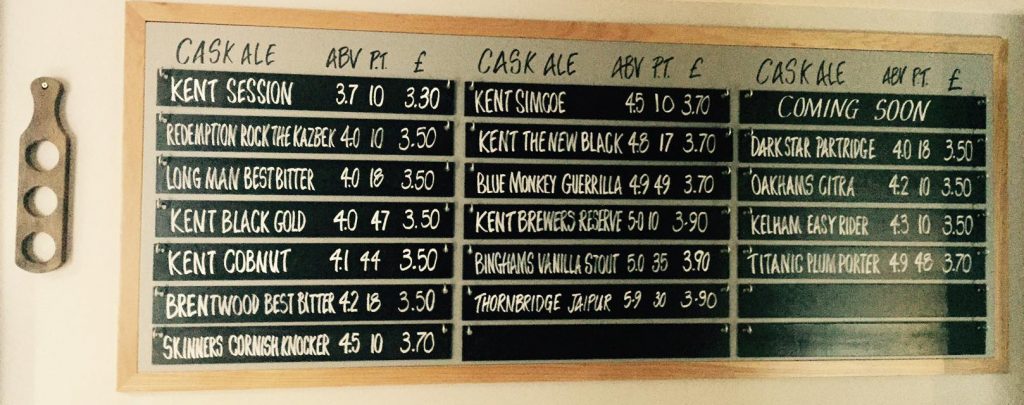 CASK ALE ABV P.T. £
KENT SESSION 3.7 10 3.30
REDEMPTION ROCK THE KAZBEK 4.0 10 3.50
LONG MAN BEST BITTER 4.0 18 3.50
KENT BLACK GOLD 4.0 47 3.50
KENT COBNUT 4.1 44 3.50
BRENTWOOD BEST BITTER 4.2 18 3.50
SKINNERS CORNISH KNOCKER 4.5 10 3.70
CASK ALE ABV P.T. £
KENT SIMCOE 4.5 10 3.70
KENT THE NEW BLACK 4.8 17 3.70
BLUE MONKEY GUERRILLA 4.9 49 3.70
KENT BREWERS RESERVE 5.0 10 3-90
BINGHAMS VANILLA STOUT 5.0 35 3.90
THORNBRIDGE JAIPUR 5-9 30 3-90
CASK ALE ABV P.T. £
COMING SOON
DARK STAR PARTRIDGE 4.0 18 3.50
OAKHAMS CITRA 4.2 10 3.50
KELHAM EASY RIDER 4.3 10 3.50
TITANIC PLUM PORTER 4.9 48 3.70